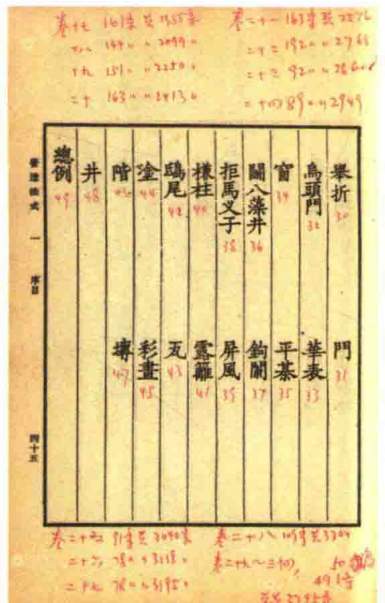 卷十七 161条共1955条
十八 144〃〃2099〃
十九 151〃〃2250〃
二十 163〃〃2413〃
卷二十一 163条共2576
二十二 192〃〃2768
二十三 92〃〃2860〃
二十四 89〃〃2949
舉折 30 門 31
烏頭門 32 華表 33
窗 34 平棊 35
鬭八藻井 36 鉤闌 37
拒馬叉子 38 屏風 39
櫂柱 40 露籬 41
鴟尾 42 瓦 43
塗 44 彩畫 45
階 46 塼 47
井 48
總例 49
營造法式 一 序目 四十五
卷二十五 91条共3040条
二十六 78〃〃3118〃
二十七 78〃〃3195〃
卷二十八 109条共3304
卷二十九~三十四
491条